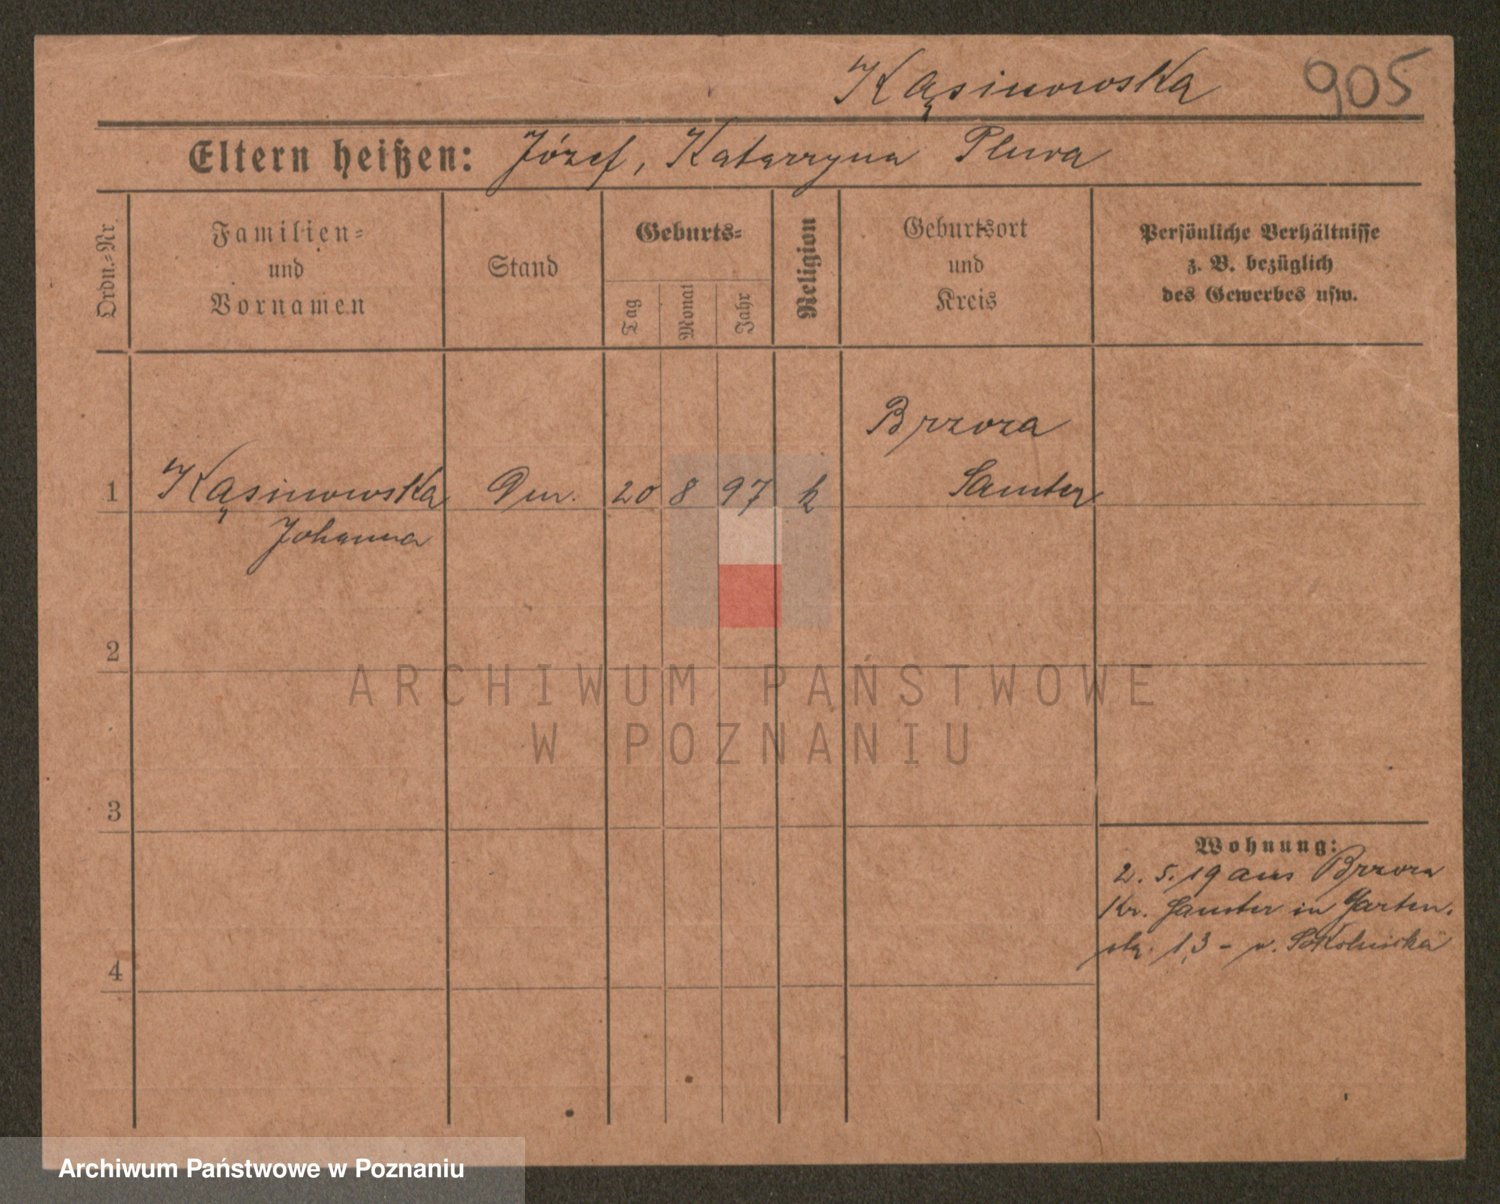 Kąsinowska 905
Eltern heißen: Józef, Katarzyna Pluva
Ordn.-Nr
Familien-
und
Vornamen
Stand
Geburts-
Tag
Monat
Jahr
Religion
Geburtsort
und
Kreis
Persönliche Verhältnisse
z. B. bezüglich
des Gewerbes usw.
Brzoza
1 Kąsinowska 20 8 97 k Samter
Johanna
2
3
4
Wohnung:
2. 5. 19 aus Brzoza
Kr. Samter in Garten-
str. 13 -
ARCHIWUM PAŃSTWOWE
W POZNANIU
Archiwum Państwowe w Poznaniu